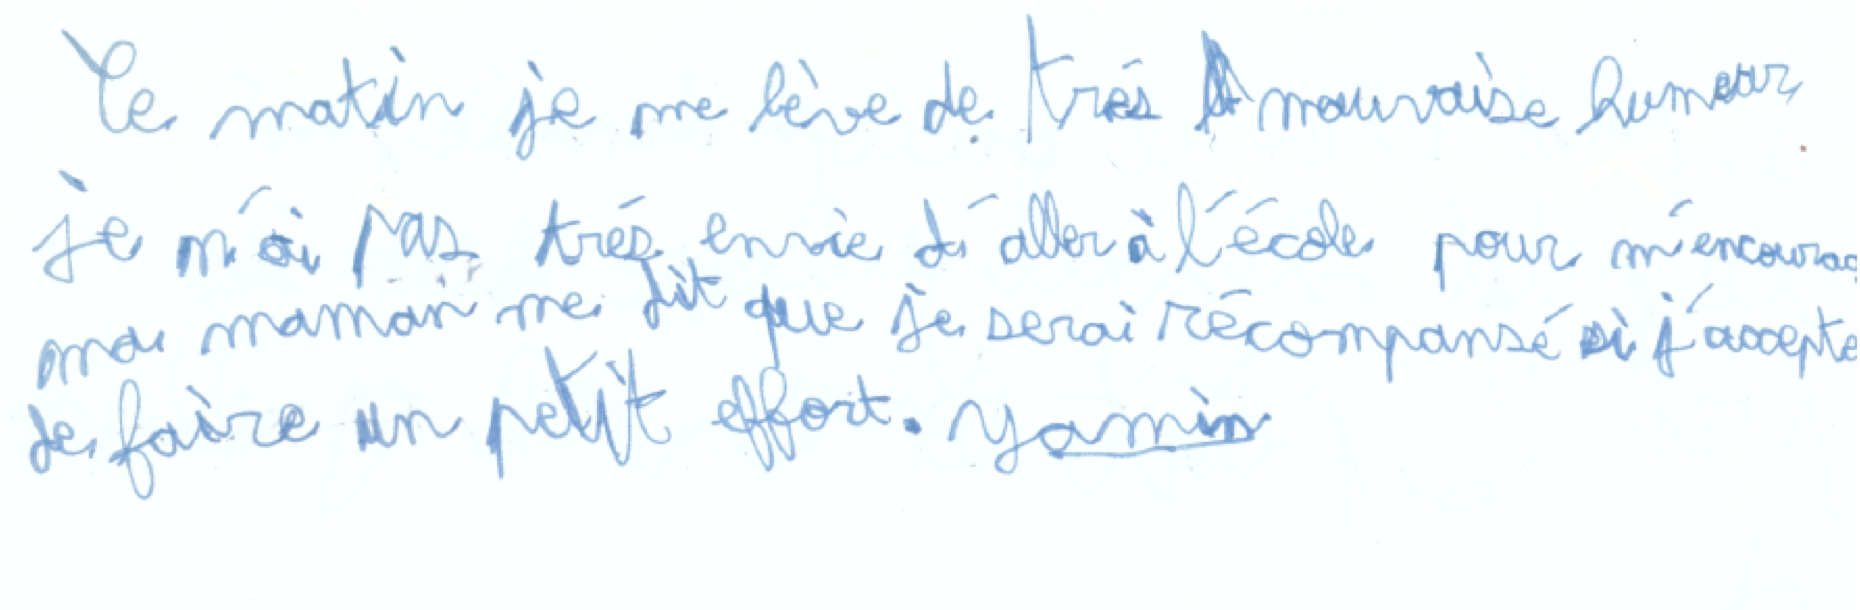 Ce matin je me lève de trés mauvaise humeur
je n'ai pas trés envie d'aller à l'école pour m'encourag
ma maman me dit que je serai récompansé si j'accepte
de faire un petit effort. Yamin